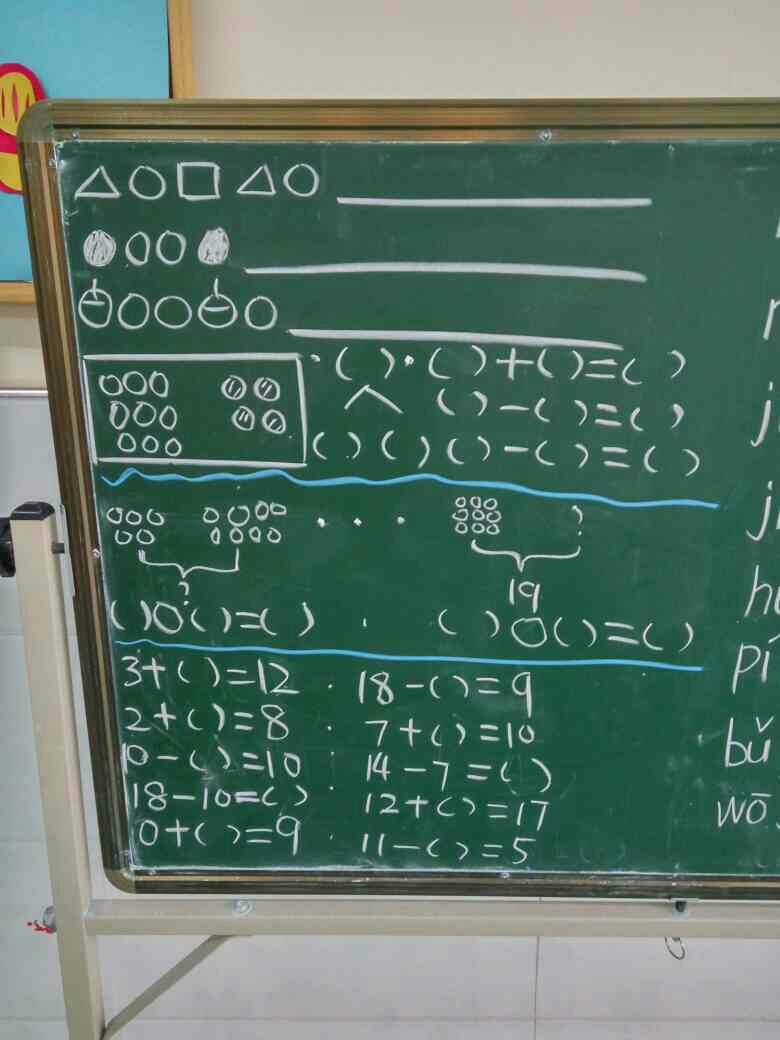 △○□△○
●○○●
○○○○○
·( )·( )+( )=( )
( )-( )=( )
( )( )( )-( )=( )
· · · ?
? 19
( )○( )=( ) · ( )○( )=( )
3+( )=12 · 18-( )=9
2+( )=8 · 7+( )=10
10-( )=10 14-7=( )
18-10=( ) · 12+( )=17
0+( )=9 · 11-( )=5
bǔ
wō